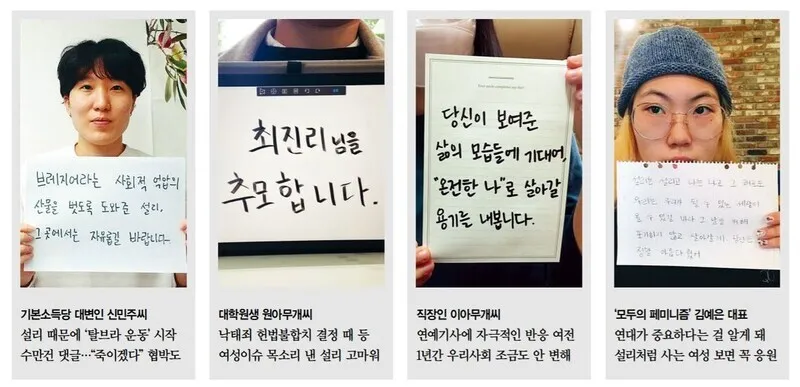 브레지어라는 사회적 억압의
산물을 벗도록 도와준 설리.
그곳에서는 자유롭길 바랍니다.
최진리님을
추모합니다.
당신이 보여준
삶의 모습들에 기대어,
"온전한 나"로 살아갈
용기를 내봅니다.
기본소득당 대변인 신민주씨
설리 때문에 ‘탈브라 운동’ 시작
수만건 댓글…“죽이겠다” 협박도
대학원생 원아무개씨
낙태죄 헌법불합치 결정 때 등
여성이슈 목소리 낸 설리 고마워
직장인 이아무개씨
연예기사에 자극적인 반응 여전
1년간 우리사회 조금도 안 변해
‘모두의 페미니즘’ 김예은 대표
연대가 중요하다는 걸 알게 돼
설리처럼 사는 여성 보면 꼭 응원